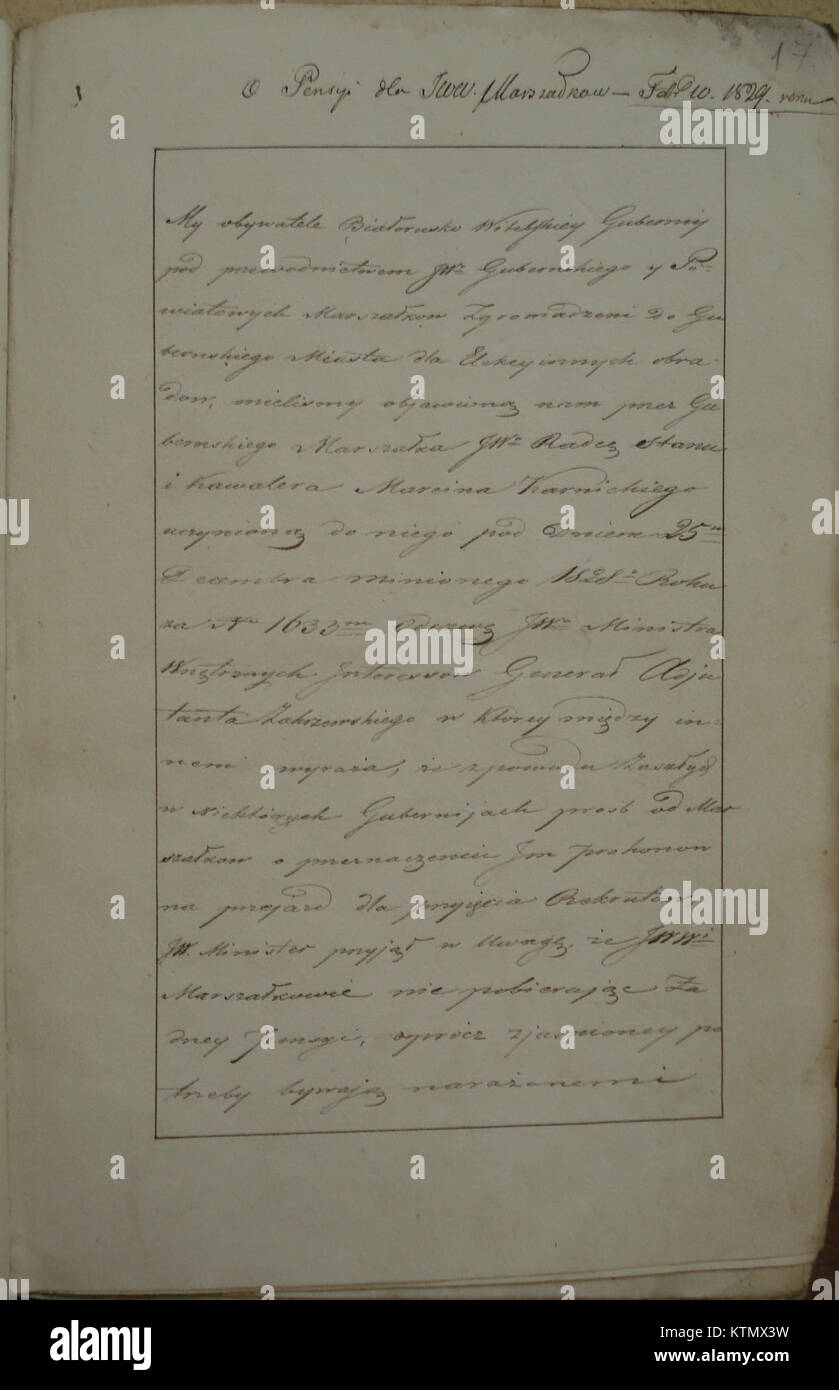 17
O Pensyi dla Jww. Marszałkow — Febr 10. 1829. roku
My obywatele Białorusko Witebskiey Gubernij
pod przewodnictwem JWo Gubernskiego y Po-
wiatowych Marszałkow Zgromadzeni do Gu
bernskiego Miasta dla Elekcyinnych obra
dow, mielismy objawioną nam przez Gu
bernskiego Marszałka JWo Radcę Stanu
i Kawalera Marcina Karnickiego
uczynioną do niego pod Dniem 25m
Decembra minionego 1828o Roku
za No 1633m Odezwę JWo Ministra
Wnętrznych Interessow Generał Adju
tanta Zakrzewskiego w ktorey między in-
nemi wyraża, że z powodu Zaszłych
w Niektórych Gubernijach prosb od Mar
szałkow o przeznaczeniu Jm prohonow
na przejazd dla przyięcia Rekrutow,
JW. Minister przyjął w Uwagę, że JWWi
Marszałkowie nie pobierając Ża
dney Pensyi, oprócz zjasnioney po
trzeby bywają narażonemi
alamy
a
Image ID: KTMX3W
www.alamy.com